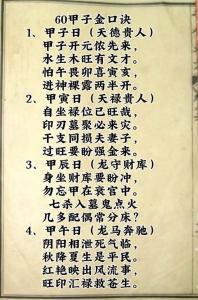 60甲子金口诀
1、甲子日（天德贵人）
甲子开元侬先来，
水生木旺有文才。
怕午畏卯喜寅亥，
进神裸露两半开。
2、甲寅日（天禄贵人）
自坐禄位己旺哉，
印刃墓聚必来灾。
干支同损夫妻子，
过旺要盼强金来。
3、甲辰日（龙守财库）
身坐财库要盼冲，
勿忘甲在衰官中。
七杀入墓鬼点火
几多配偶常分床？
4、甲午日（龙马奔驰）
阴阳相泄死气临，
秋降夏生是平民。
红艳映出风流事，
旺印汇禄救苍生。